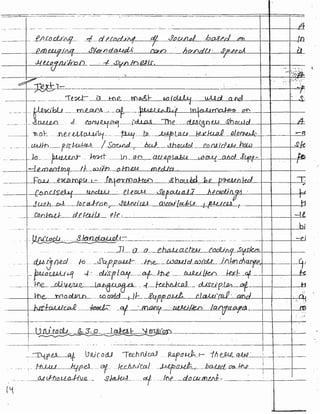 encoding & decoding of sound based on
emerging standards can handle speech
recognition & synthesis.
Text :-
Text is the most widely used and
flexible means of presenting information on
screen & conveying ideas. The designer should
not necessarily try to replace textual elements
with pictures / sound, but should consider how
to present text in an acceptable way and supp-
lementing it with other media.
For example :- Information should be presented
Concisely under clear separate headings
such as location, services available, prices,
contact details etc.
Unicode Standard :-
It is a character coding system
designed to support the worldwide interchange,
processing & display of the written text of
the diverse languages & technical disciplines of
the modern world, it supports classical and
historical text of many written language.
Unicode 6.3.0 latest version
Types of Unicode Technical Reports :- these are
three types of technical reports, based on the
authoritative status of the document.